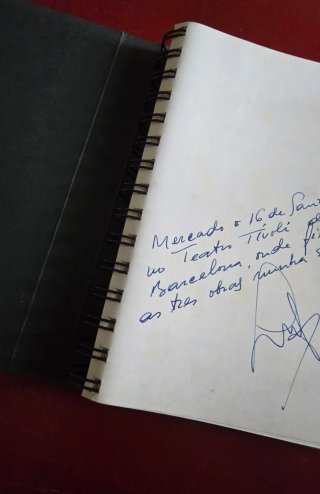 Mercado o 16 de
no Teatro Tívoli
Barcelona, onde
as tres obras, minha